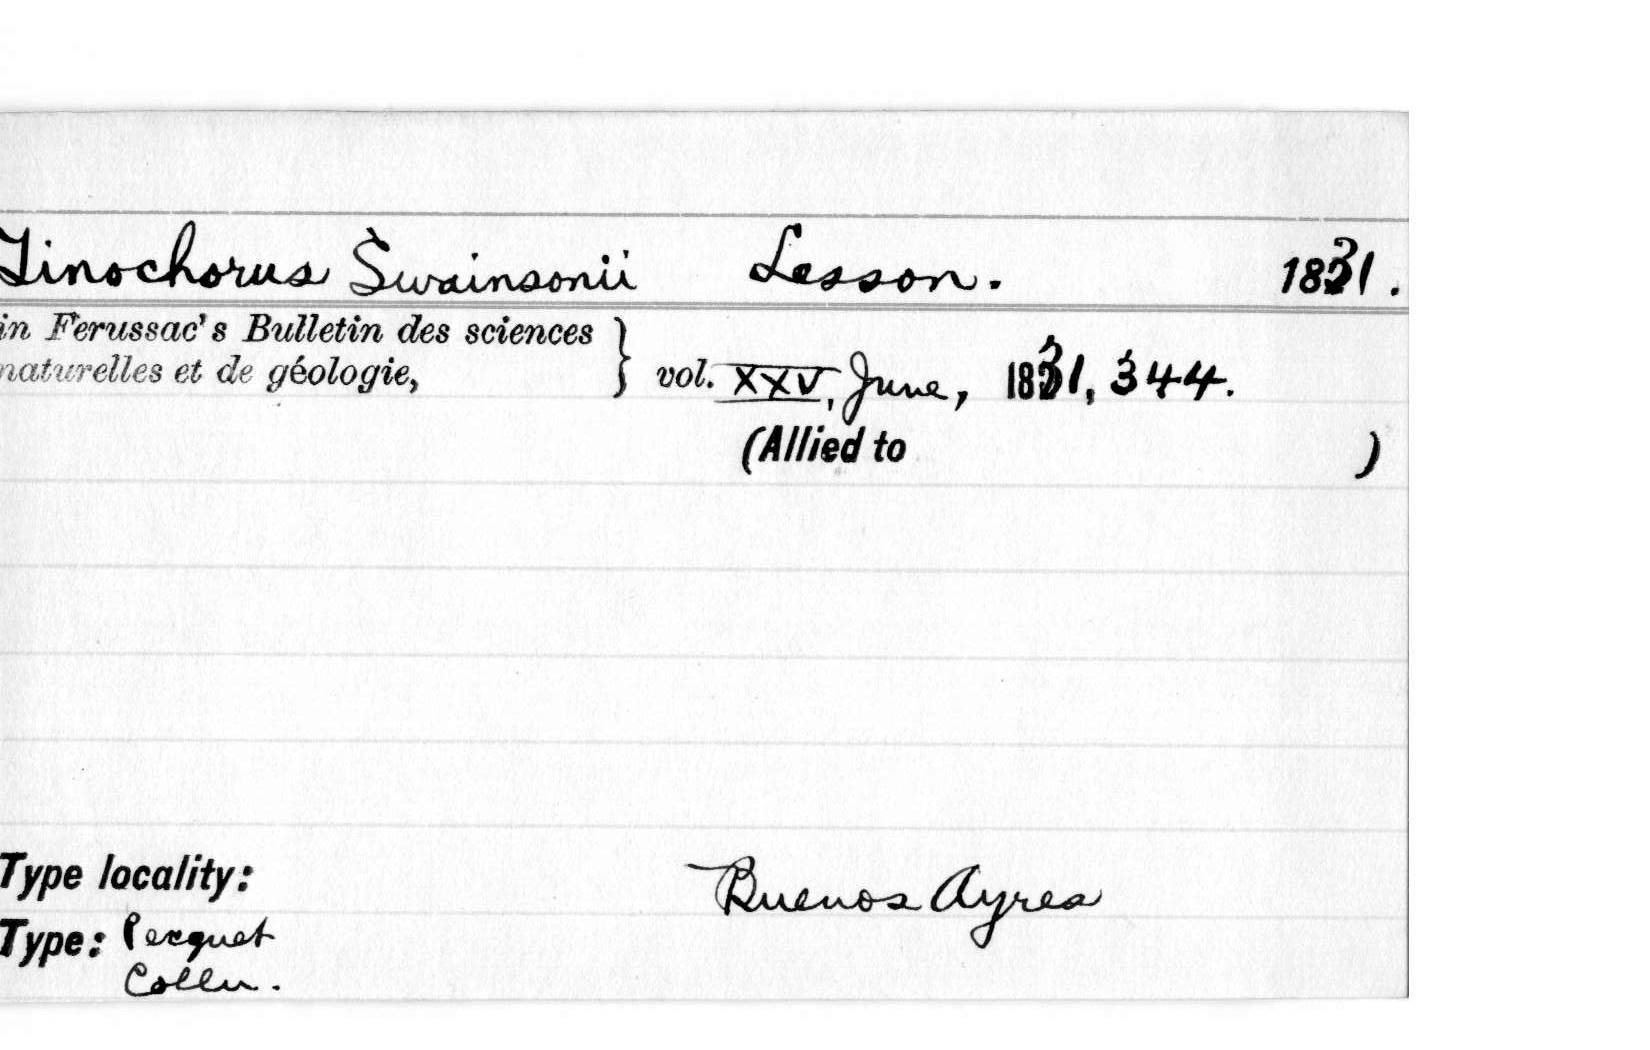 Tinochorus Swainsonii Lesson. 1831.
in Ferussac's Bulletin des sciences
naturelles et de géologie, } vol. XXV, June, 1831, 344.
(Allied to )
Type locality: Buenos Ayres
Type: Pecquet
Colln.